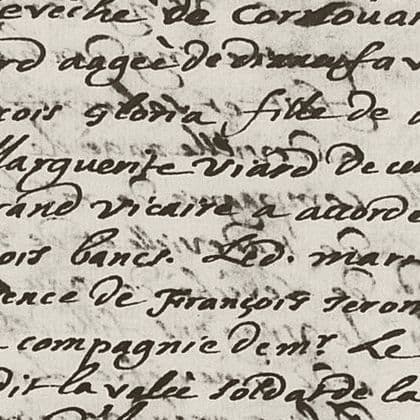 evéche de Cordouan
rd aageè de sa v
cois gloria fille de
Marguerite viard De
rand vicaire a accorde
ois bancs. Led. mar
ence de François Jeron
compagnie de mr Le
dit la valeè soldat de la